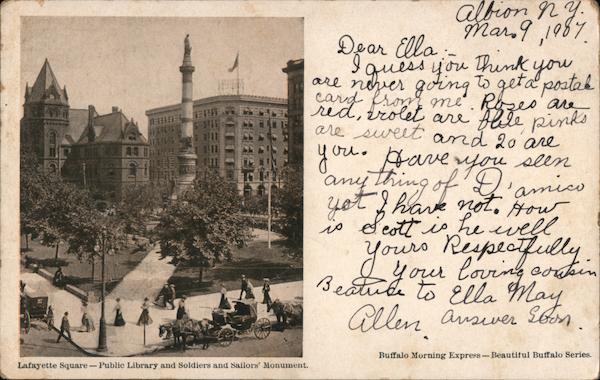 Albion N Y.
Mar. 9, 1907
Dear Ella.-
I guess you think you
are never going to get a postal
card from me. Roses are
red, violet are blue, pinks
are sweet and so are
you. Have you seen
anything of D'amico
yet I have not. How
is Scott is he well
Yours Respectfully
Your loving cousin
Beatrice to Ella May
Allen. Answer Soon.
Lafayette Square — Public Library and Soldiers and Sailors' Monument.
Buffalo Morning Express — Beautiful Buffalo Series.